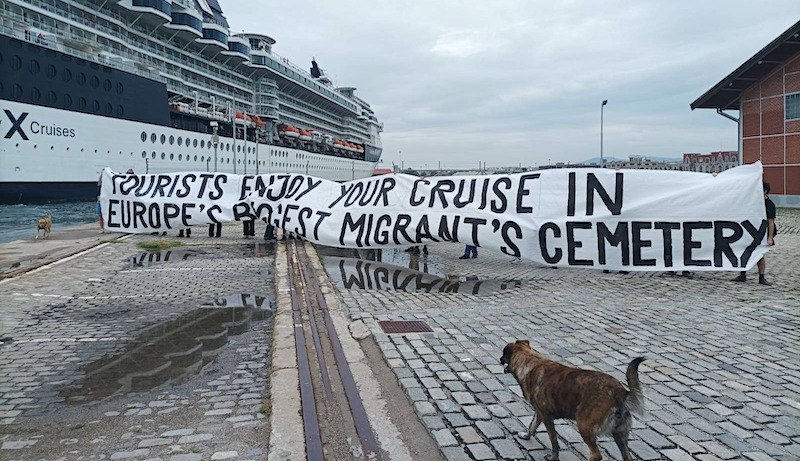 X Cruises
TOURISTS ENJOY YOUR CRUISE IN
EUROPE'S BIGEST MIGRANT'S CEMETERY